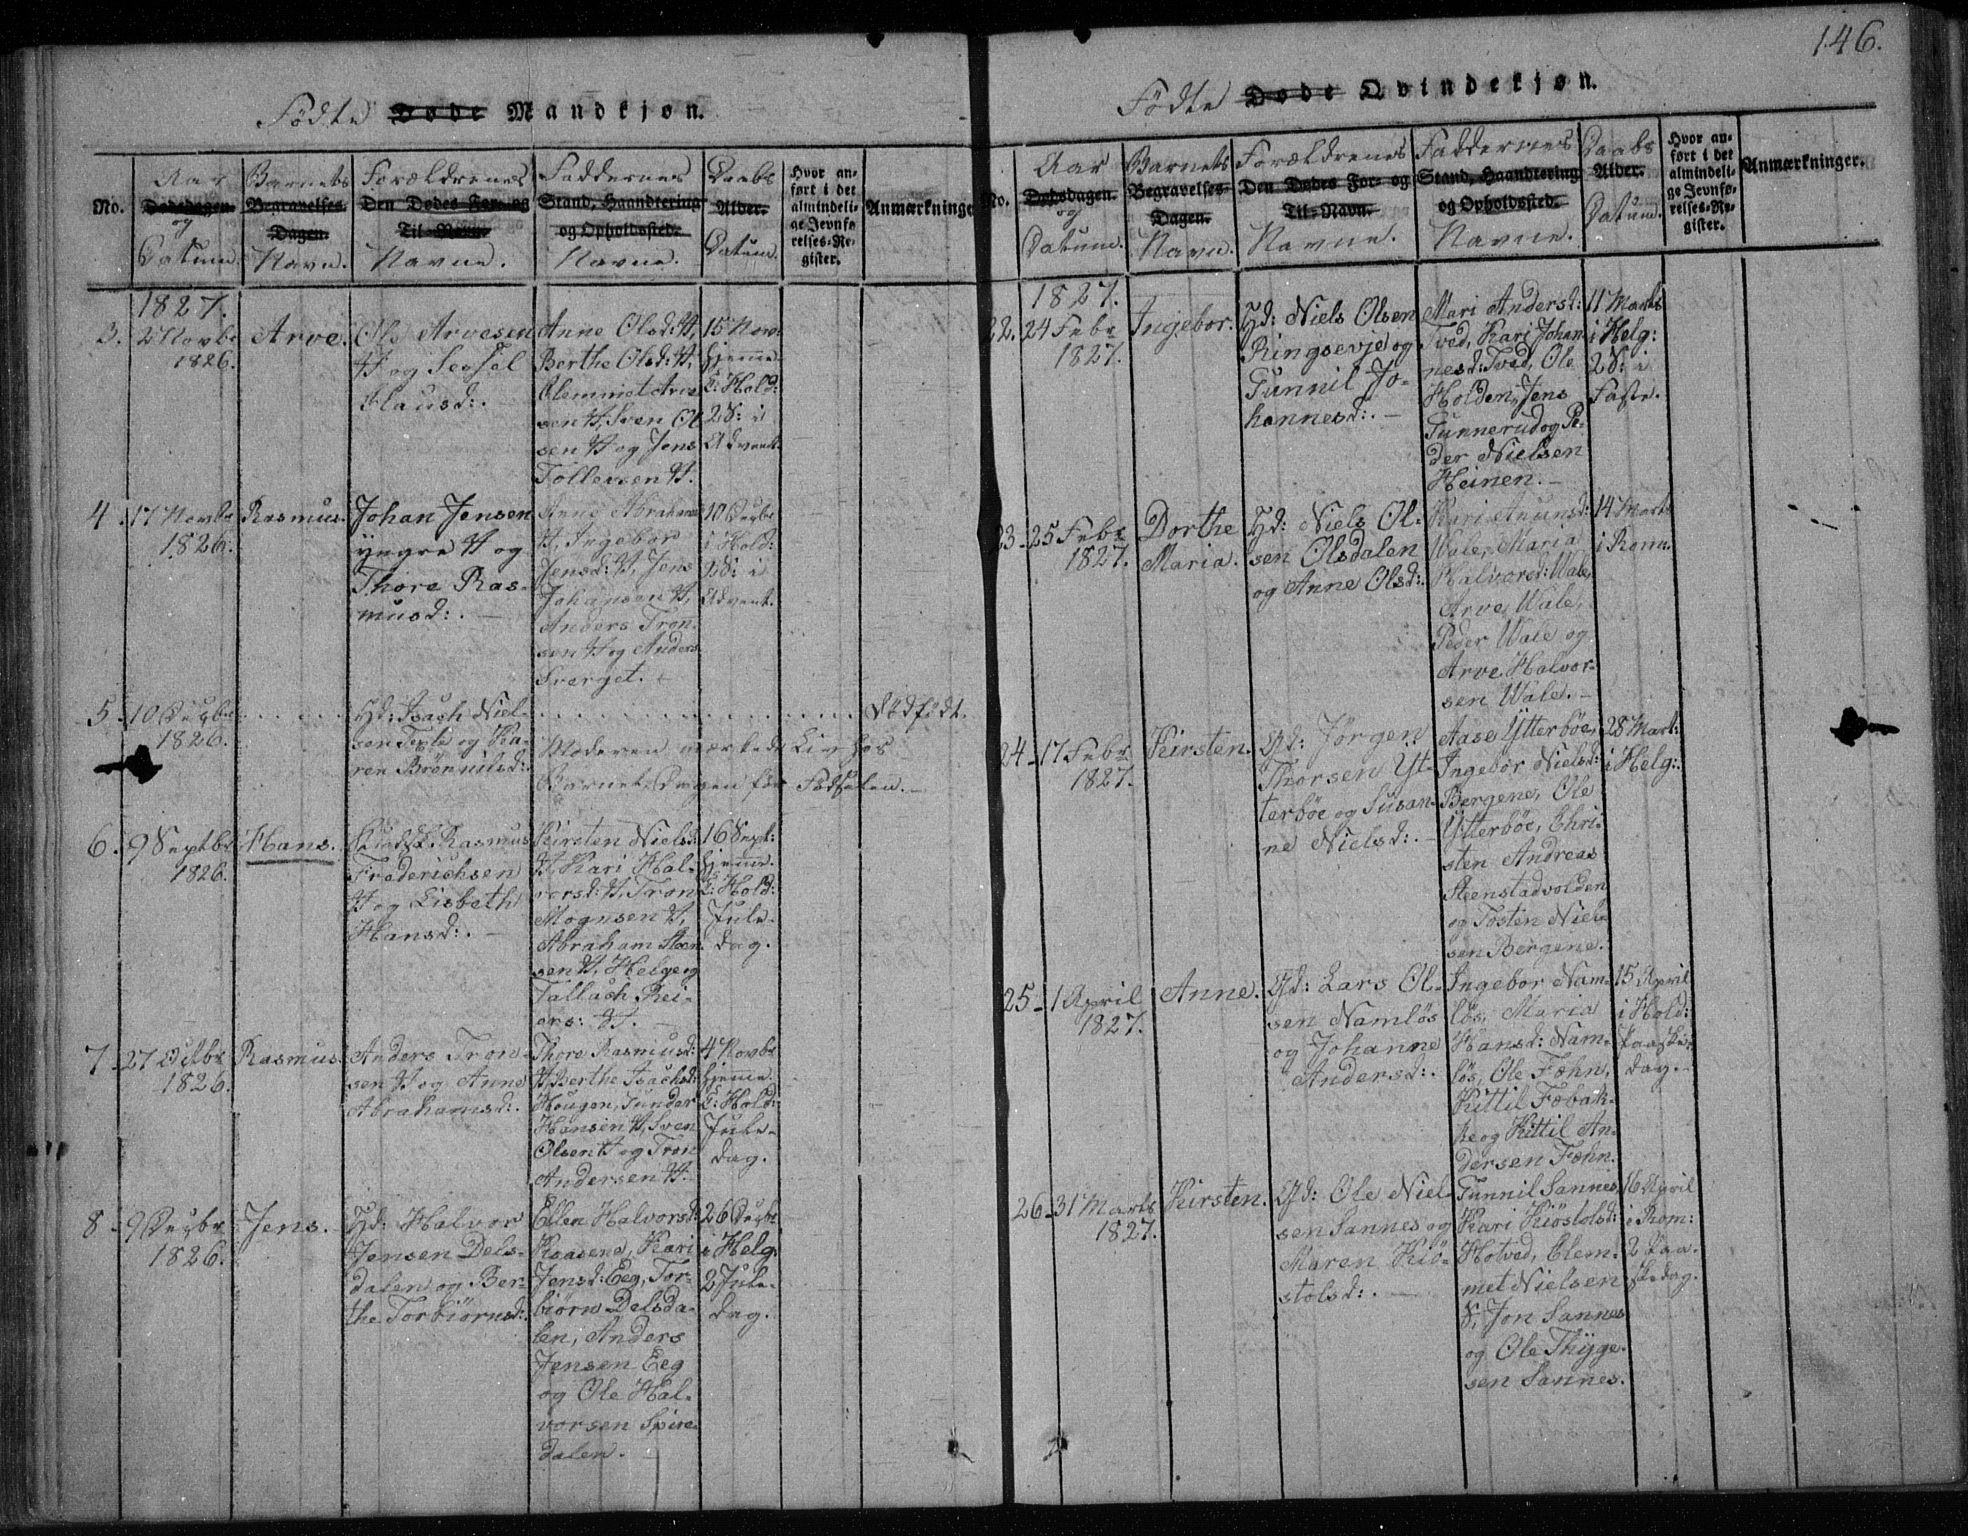 146.
Födte Døde Mandkjøn.
No.
Aar
Dødsdagen.
og
Datum.
Barnets
Begravelses-
Dagen.
Navn.
Forældrenes
Den Dødes For- og
Til-Navn.
Navne.
Faddernes
Stand, Haandtering
og Opholdssted.
Navne.
Daabs
Alder.
Datum.
Hvor an-
ført i det
almindeli-
ge Jevnfø-
relses-Re-
gister.
Anmærkninge
1827.
3.
2 Novbr
1826.
Arve.
Ole Arvesen
H og Sessel
Clausd:.
Anne Olsd: H,
Berthe Olsd: H,
Clemmet Arve
sen H, Sven Ol
sen H og Jens
Tollevsen H.
15 Novr
hjemme
C: Hold:
2 S: i
Advent.
4.
17 Novbr
1826.
Rasmus.
Johan Jensen
yngre H og
Thore Ras-
musd:.
Anne Abrahams
H, Ingebor
Jensd: H, Jens
Johansen H,
Anders Tron
sen H og Anders
Sverget.
10 Decbr
i Hold:
2 S: i
Advent.
5.
10 Decbr
1826.
Hd: Isach Niel-
sen Texle og Ka-
ren Brönnilsd:
Dödfödt.
Moderen mærkede Liv hos
Barnet Dagen för Födselen.
6.
9 Septbr
1826.
Hans.
Rasmus
Fraderichsen
H og Lisbeth
Hansd:.
Kirsten Nielsd:
H, Kari Hal-
vorsd: H, Tron
Mognsen H,
Abraham Steen
sen H, Helge og
Tallach Rei-
ers: H.
16 Sept:
hjemme.
C: Hold:
Jule-
dag.
7.
27 Octbr
1826.
Rasmus.
Anders Tron-
sen H og Anne
Abrahamsd:.
Thore Rasmusd:
H, Berthe Isachsd:
Hougen, Gunder
Hansen H, Sven
Olsen H og Tron
Andersen H.
4 Novbr
hjemme.
C: Hold:
Jule-
dag.
8.
9 Decbr
1826.
Jens.
Hd: Halvor
Jensen Dels-
dalen og Ber-
the Torbiörnsd:.
Ellen Halvorsd:
Kaasene, Kari
Jensd: Eeg, Tor-
biörn Delsda-
len, Anders
Jensen Eeg
og Ole Hal-
vorsen Spire-
dalen.
26 Decbr
i Helg:
2 Jule-
dag.
Födte Døde Qvindekjøn.
No.
Aar
Dødsdagen.
og
Datum.
Barnets
Begravelses-
Dagen.
Navn.
Forældrenes
Den Dødes For- og
Til-Navn.
Navne.
Faddernes
Stand, Haandtering
og Opholdssted.
Navne.
Daabs
Alder.
Datum.
Hvor an-
ført i det
almindeli-
ge Jevnfø-
relses-Re-
gister.
Anmærkninger.
1827.
22.
24 Febr
1827.
Ingebor.
Hd: Niels Olsen
Ringsevje og
Gunnil Jo-
hannesd:.
Mari Andersd:
Tved, Kari Johan
nesd: Tved, Ole
Holden, Jens
Gunnerud og Pe-
der Nielsen
Heinen.
11 Marts
i Helg:
2 S: i
Faste.
23.
25 Febr
1827.
Dorthe
Maria.
Hd: Niels Ol-
sen Olsdalen
og Anne Olsd:.
Kari Anunsd:
Wale, Maria
Halvorsd: Wale,
Arve Wale,
Peder Wale og
Arve Halvor-
sen Wale.
14 Marts
i Romn.
24.
17 Febr
1827.
Kirsten.
Gd: Jörgen
Thorsen Yt-
terböe og Susan-
ne Nielsd:.
Aase Ytterböe,
Ingebor Nielsd:
Bergene, Ole
Ytterböe, Chri-
sten Andreas
Steenstadvolden
og Tosten Niel
sen Bergene.
28 Mart:
i Helg:.
25.
1 April
1827.
Anne.
Gd: Lars Ol-
sen Namlös
og Johanne
Andersd:.
Ingebor Nam-
lös, Maria
Hansd: Nam-
lös, Ole Fæhn,
Kittil Fæbak-
ke og Kittil An-
dersen Fæhn.
15 April
i Hold:
Paaske-
dag.
26.
31 Marts
1827.
Kirsten.
Gd: Ole Niel-
sen Sannes og
Maren Kiö-
stolsd:.
Gunnil Sannes,
Kari Kiöstolsd:
Hotved, Clem-
met Nielsen
S, Jon Sannes
og Ole Thyge-
sen Sannes.
16 April
i Rom:
2 Paa-
skedag.